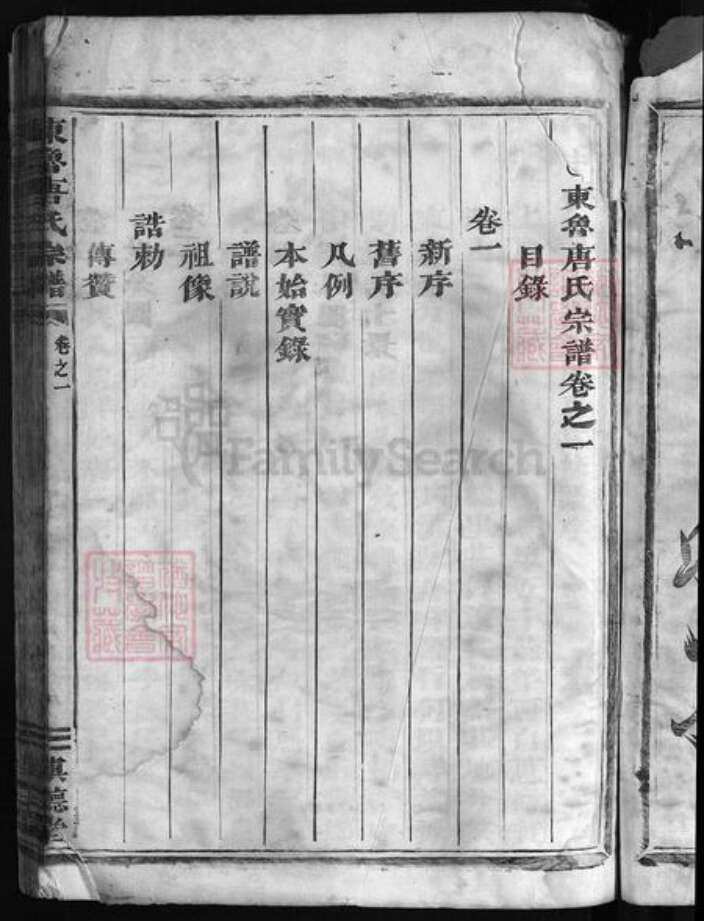 東魯唐氏宗譜卷之一
目錄
卷一
新序
舊序
凡例
本始實錄
譜說
祖像
誥勅
傳贊
東魯唐氏宗譜
卷之一
德
FamilySearch